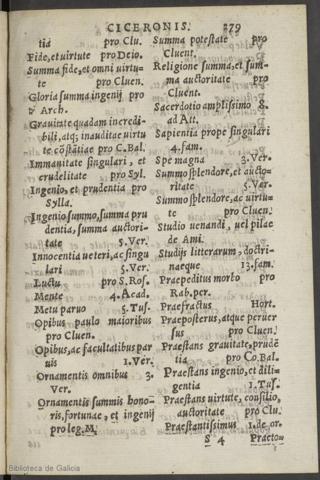 CICERONIS. 279
tia pro Clu.
Fide, et uirtute pro Deio.
Summa fide, et omni uirtu-
te pro Cluen.
Gloria summa ingenij pro
Arch.
Grauitate quadam incredi-
bili, atq; inaudita uirtu
te cõstãtiae pro C. Bal.
Immanitate singulari, et
crudelitate pro Syl.
Ingenio, et prudentia pro
Sylla.
Ingenio summo, summa pru
dentia, summa auctori-
tate 5. Ver.
Innocentia ueteri, ac singu
lari 5. Ver.
Luctu pro S. Ros.
Mente 4. Acad.
Metu paruo 5. Tus.
Opibus paulo maioribus
pro Cluen.
Opibus, ac facultatibus par
uis 1. Ver.
Ornamentis omnibus 3.
Ver.
Ornamentis summis hono-
ris, fortunae, et ingenij
pro leg. M.
Summa potestate pro
Cluent.
Religione summa, et sum-
ma auctoritate pro
Cluent.
Sacerdotio amplissimo 8.
ad Att.
Sapientia prope singulari
4. fam.
Spe magna 3. Ver.
Summo splendore, et aucto-
ritate 5. Ver.
Summo splendore, ac uirtu-
te pro Cluen.
Studio uenandi, uel pilae
de Ami.
Studijs litterarum, doctri-
naeque 13. fam.
Praepeditus morbo pro
Rab. per.
Praefractus Hort.
Praeposterus, atque peruer
sus pro Cluen.
Praestans grauitate, prudẽ
tia pro Co. Bal.
Praestans ingenio, et dili-
gentia 1. Tus.
Praestans uirtute, consilio,
auctoritate pro Clu.
Praestantissimus 1. de or.
S 4 Praeto-
Biblioteca de Galicia